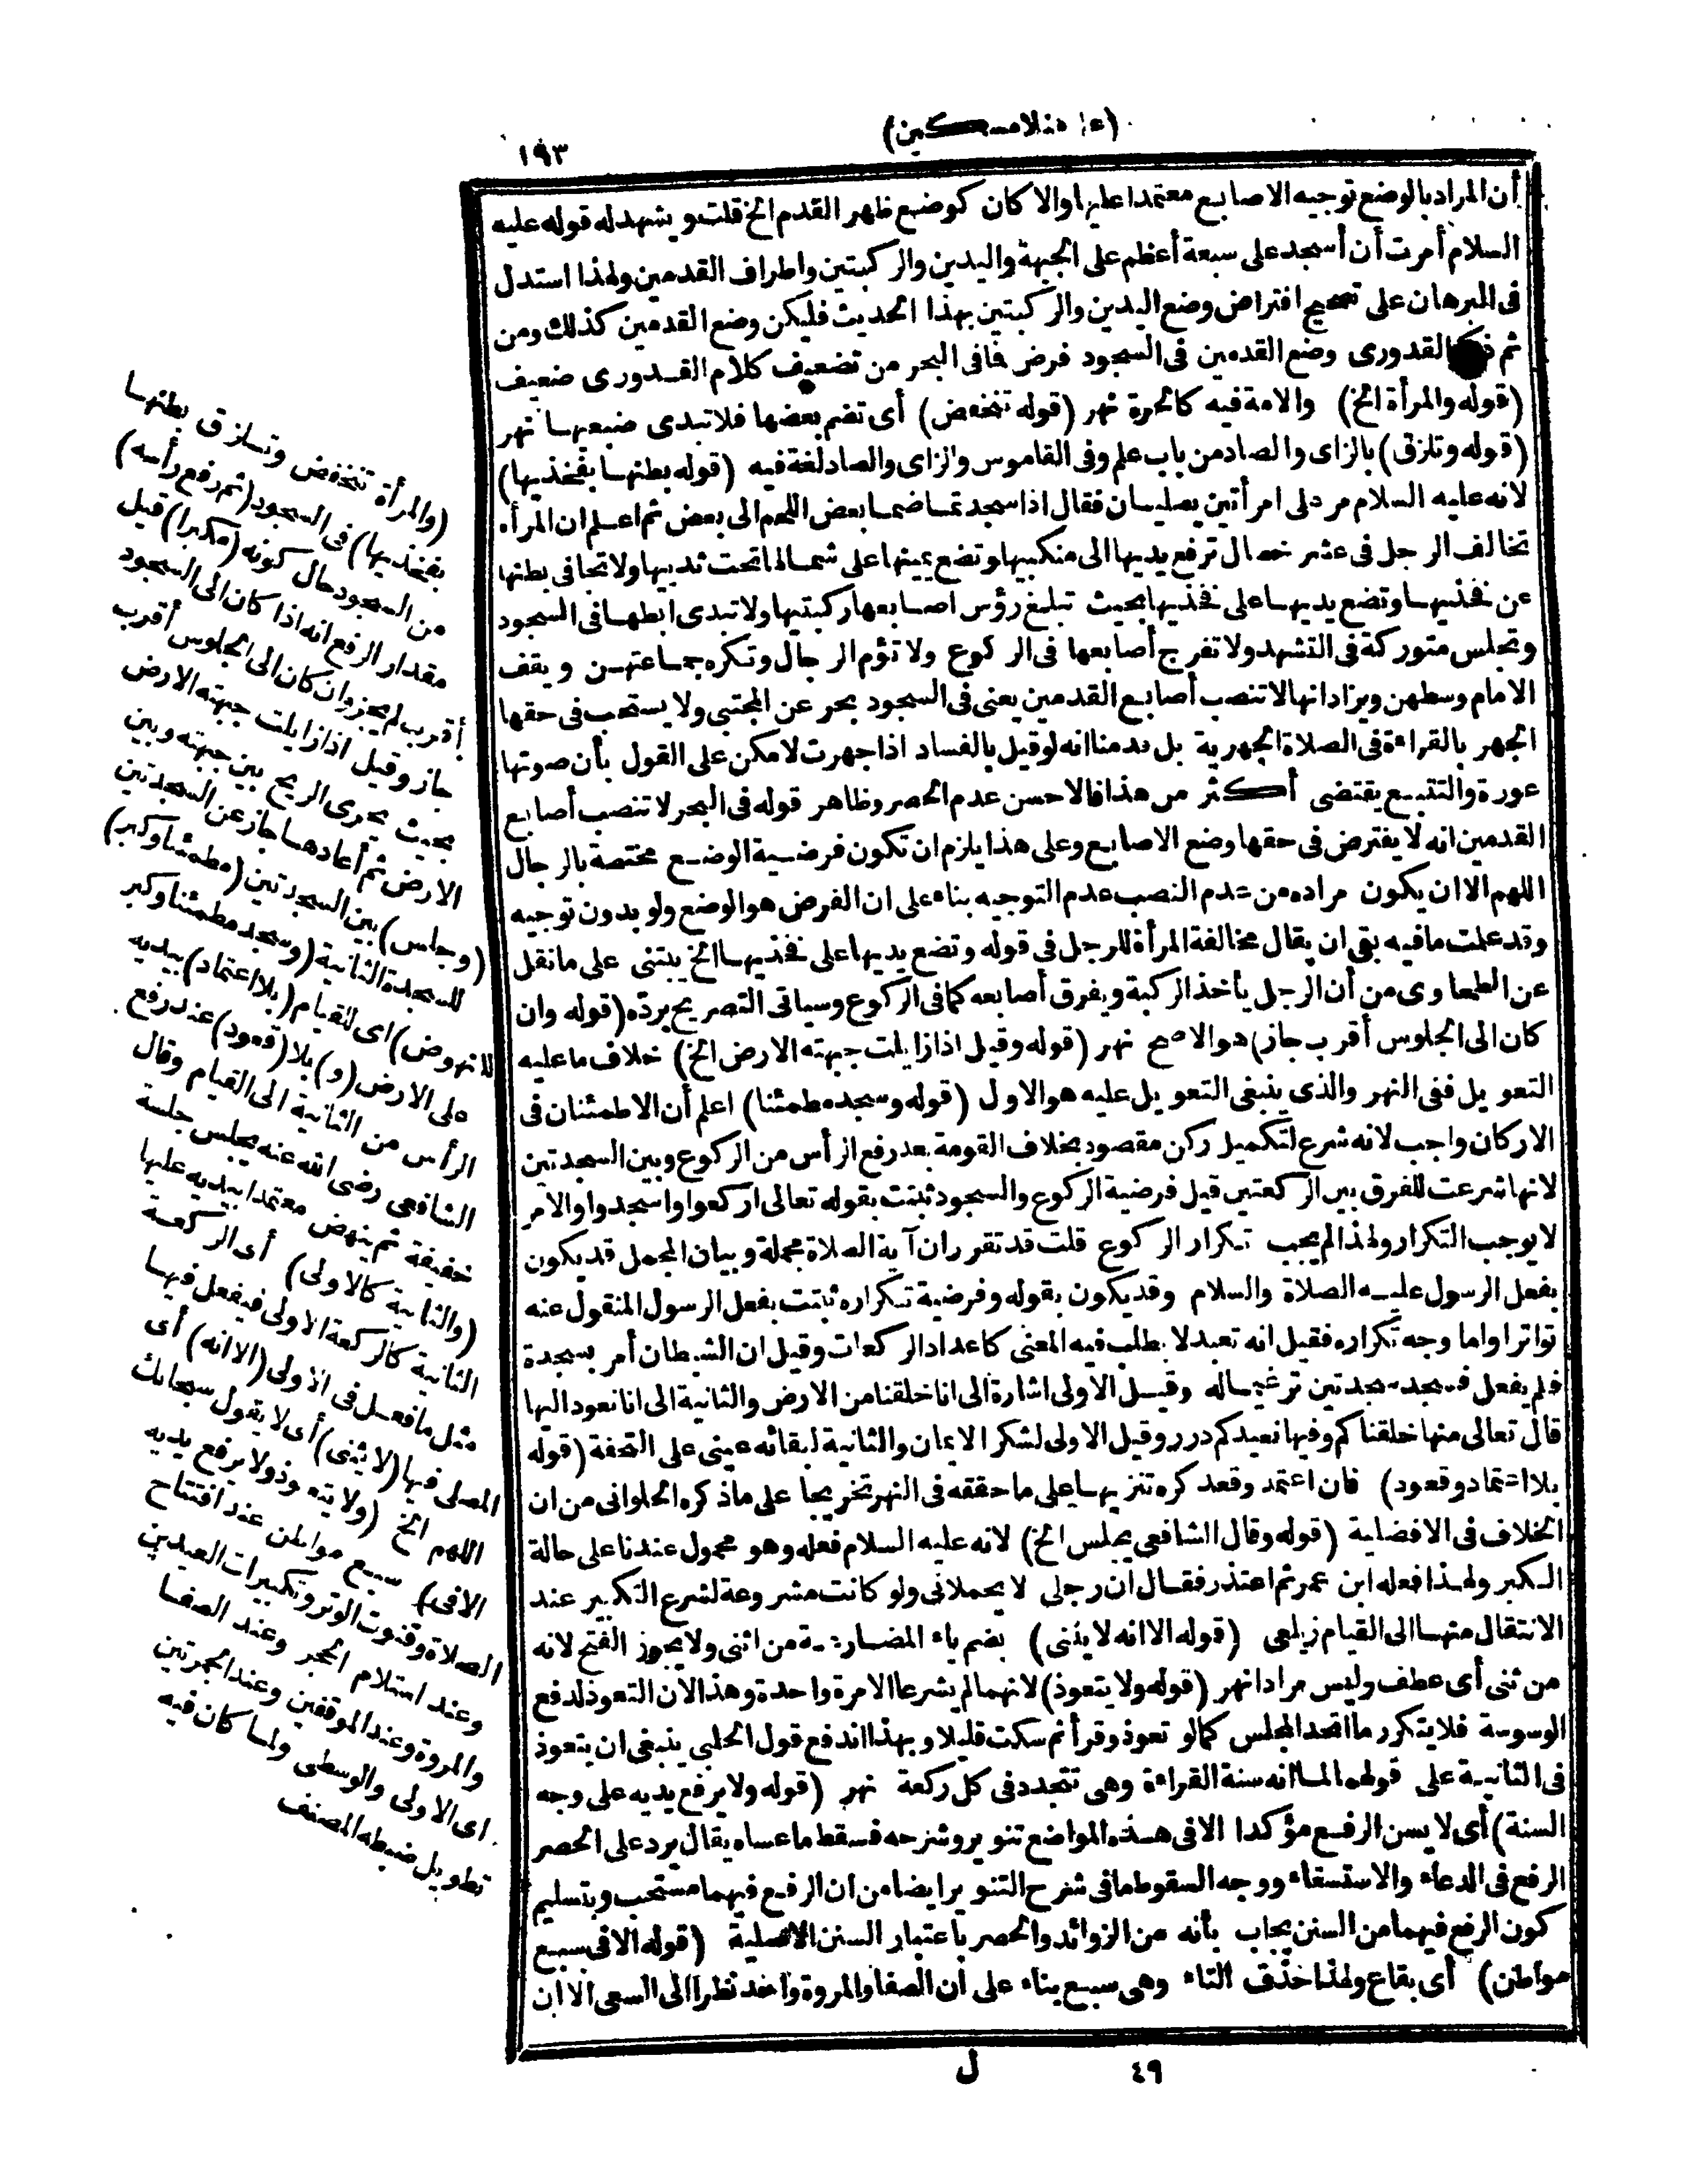 (على منلا مسكين)
١٩٣
أن المراد بالوضع توجيه الاصابع معتمدا عليها والا كان كوضع ظهر القدم الخ قلت ويشهد له قوله عليه
السلام أمرت أن أسجد على سبعة أعظم على الجبهة واليدين والركبتين واطراف القدمين ولهذا استدل
فى البرهان على تصحيح افتراض وضع اليدين والركبتين بهذا الحديث فليكن وضع القدمين كذلك ومن
ثم القدورى وضع القدمين فى السجود فرض فما فى البحر من تضعيف كلام القدورى ضعيف
(قوله والمرأة الخ) والامة فيه كالحرة نهر (قوله تنخفض) أى تضم بعضها فلا تبدى ضبعيها نهر
(قوله وتلزق) بالزاى والصاد من باب علم وفى القاموس والزاى والصاد لغة فيه (قوله بطنها بفخذيها)
لانه عليه السلام مر على امرأتين يصليان فقال اذا سجدتما ضما بعض اللحم الى بعض ثم اعلم ان المرأة
تخالف الرجل فى عشر خصال ترفع يديها الى منكبيها وتضع يمينها على شمالها تحت ثدييها ولا تجافى بطنها
عن فخذيها وتضع يديها على فخذيها بحيث تبلغ رؤس اصابعها ركبتيها ولا تبدى ابطها فى السجود
وتجلس متوركة فى التشهد ولا تفرج أصابعها فى الركوع ولا تؤم الرجال وتكره جماعتهن ويقف
الامام وسطهن ويزاد انها لا تنصب أصابع القدمين يعنى فى السجود بحر عن المجتبى ولا يستحب فى حقها
الجهر بالقراءة فى الصلاة الجهرية بل قدمنا انه لو قيل بالفساد اذا جهرت لامكن على القول بأن صوتها
عورة والتتبع يقتضى أكثر من هذا فالاحسن عدم الحصر وظاهر قوله فى البحر لا تنصب أصابع
القدمين انه لا يفترض فى حقها وضع الاصابع وعلى هذا يلزم ان تكون فرضية الوضع مختصة بالرجال
اللهم الا ان يكون مراده من عدم النصب عدم التوجيه بناء على ان الفرض هو الوضع ولو بدون توجيه
وقد علمت ما فيه بقى ان يقال مخالفة المرأة للرجل فى قوله وتضع يديها على فخذيها الخ يبتنى على ما نقل
عن الطحاوى من أن الرجل يأخذ الركبة ويفرق أصابعه كما فى الركوع وسيأتى التصريح برده (قوله وان
كان الى الجلوس أقرب جاز) هو الاصح نهر (قوله وقيل اذا زايلت جبهته الارض الخ) خلاف ما عليه
التعويل ففى النهر والذى ينبغى التعويل عليه هو الاول (قوله وسجد مطمئنا) اعلم أن الاطمئنان فى
الاركان واجب لانه شرع لتكميل ركن مقصود بخلاف القومة بعد رفع الرأس من الركوع وبين السجدتين
لانها شرعت للفرق بين الركعتين قيل فرضية الركوع والسجود ثبتت بقوله تعالى اركعوا واسجدوا والامر
لا يوجب التكرار ولهذا لم يجب تكرار الركوع قلت قد تقرر ان آية الصلاة مجملة وبيان المجمل قد يكون
بفعل الرسول عليه الصلاة والسلام وقد يكون بقوله وفرضية تكراره ثبتت بفعل الرسول المنقول عنه
تواترا واما وجه تكراره فقيل انه تعبد لا يطلب فيه المعنى كاعداد الركعات وقيل ان الشيطان أمر بسجدة
فلم يفعل فسجد سجدتين ترغيما له وقيل الاولى اشارة الى انا خلقنا من الارض والثانية الى انا نعود اليها
قال تعالى منها خلقناكم وفيها نعيدكم درر وقيل الاولى لشكر الايمان والثانية لبقائه عينى على التحفة (قوله
بلا اعتماد وقعود) فان اعتمد وقعد كره تنزيها على ما حققه فى النهر تخريجا على ما ذكره الحلوانى من ان
الخلاف فى الافضلية (قوله وقال الشافعى يجلس الخ) لانه عليه السلام فعله وهو محمول عندنا على حالة
الكبر ولهذا فعله ابن عمر ثم اعتذر فقال ان رجلى لا يحملانى ولو كانت مشروعة لشرع التكبير عند
الانتقال منها الى القيام زيلعى (قوله الا انه لا يثنى) بضم ياء المضارعة من اثنى ولا يجوز الفتح لانه
من ثنى أى عطف وليس مرادا نهر (قوله ولا يتعوذ) لانهما لم يشرعا الا مرة واحدة وهذا لان التعوذ لدفع
الوسوسة فلا يتكرر ما اتحد المجلس كما لو تعوذ وقرأ ثم سكت قليلا وبهذا اندفع قول الحلبى ينبغى ان يتعوذ
فى الثانية على قولهما لما انه سنة القراءة وهى تتجدد فى كل ركعة نهر (قوله ولا يرفع يديه على وجه
السنة) أى لا يسن الرفع مؤكدا الا فى هذه المواضع تنوير وشرحه فسقط ما عساه يقال يرد على الحصر
الرفع فى الدعاء والاستسقاء ووجه السقوط ما فى شرح التنوير ايضا من ان الرفع فيهما مستحب وبتسليم
كون الرفع فيهما من السنن يجاب بأنه من الزوائد والحصر باعتبار السنن الاصلية (قوله الا فى سبع
مواطن) أى بقاع ولهذا حذف التاء وهى سبع بناء على أن الصفا والمروة واحد نظرا الى السعى الا ان
٤٩
ل
(والمرأة تنخفض وتلزق بطنها
بفخذيها) فى السجود (ثم رفع رأسه)
من السجود حال كونه (مكبرا) قيل
مقدار الرفع انه اذا كان الى السجود
أقرب لم يجز وان كان الى الجلوس أقرب
جاز وقيل اذا زايلت جبهته الارض
بحيث يجرى الريح بين جبهته وبين
الارض ثم أعادها جاز عن السجدتين
(وجلس) بين السجدتين (مطمئنا وكبر)
للسجدة الثانية (وسجد مطمئنا وكبر
للنهوض) اى للقيام (بلا اعتماد) بيديه
على الارض (و) بلا (قعود) عند رفع
الرأس من الثانية الى القيام وقال
الشافعى رضى الله عنه يجلس جلسة
خفيفة ثم ينهض معتمدا بيديه عليها
(والثانية كالاولى) أى الركعة
الثانية كالركعة الاولى فيفعل فيها
مثل ما فعل فى الاولى (الا انه) أى
المصلى فيها (لا يثنى) أى لا يقول سبحانك
اللهم الخ (ولا يتعوذ ولا يرفع يديه
الا فى) سبع مواطن عند افتتاح
الصلاة وقنوت الوتر وتكبيرات العيدين
وعند استلام الحجر وعند الصفا
والمروة وعند الموقفين وعند الجمرتين
اى الاولى والوسطى ولما كان فيه
تطويل ضبطه المصنف